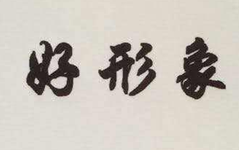 好形象